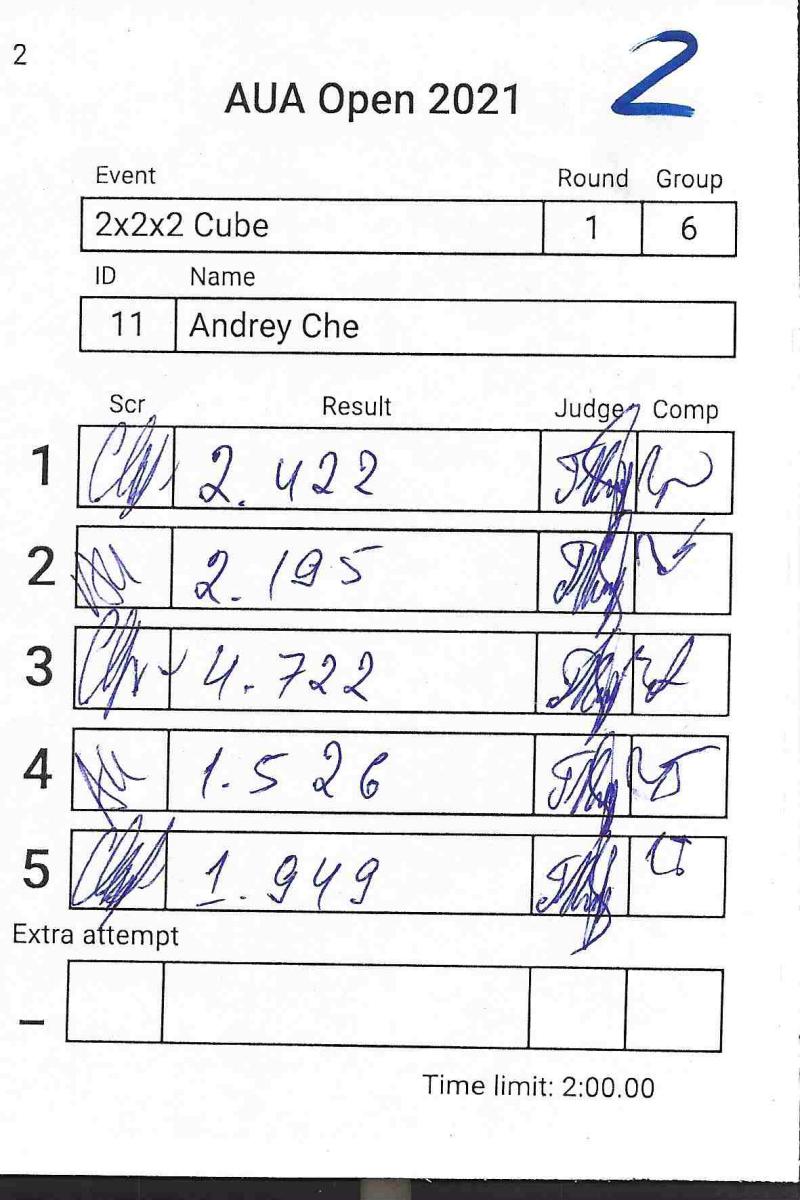 2
2
AUA Open 2021
Event Round Group
2x2x2 Cube 1 6
ID Name
11 Andrey Che
Scr Result Judge Comp
1 2.422
2 2.195
3 4.722
4 1.526
5 1.949
Extra attempt
–
Time limit: 2:00.00